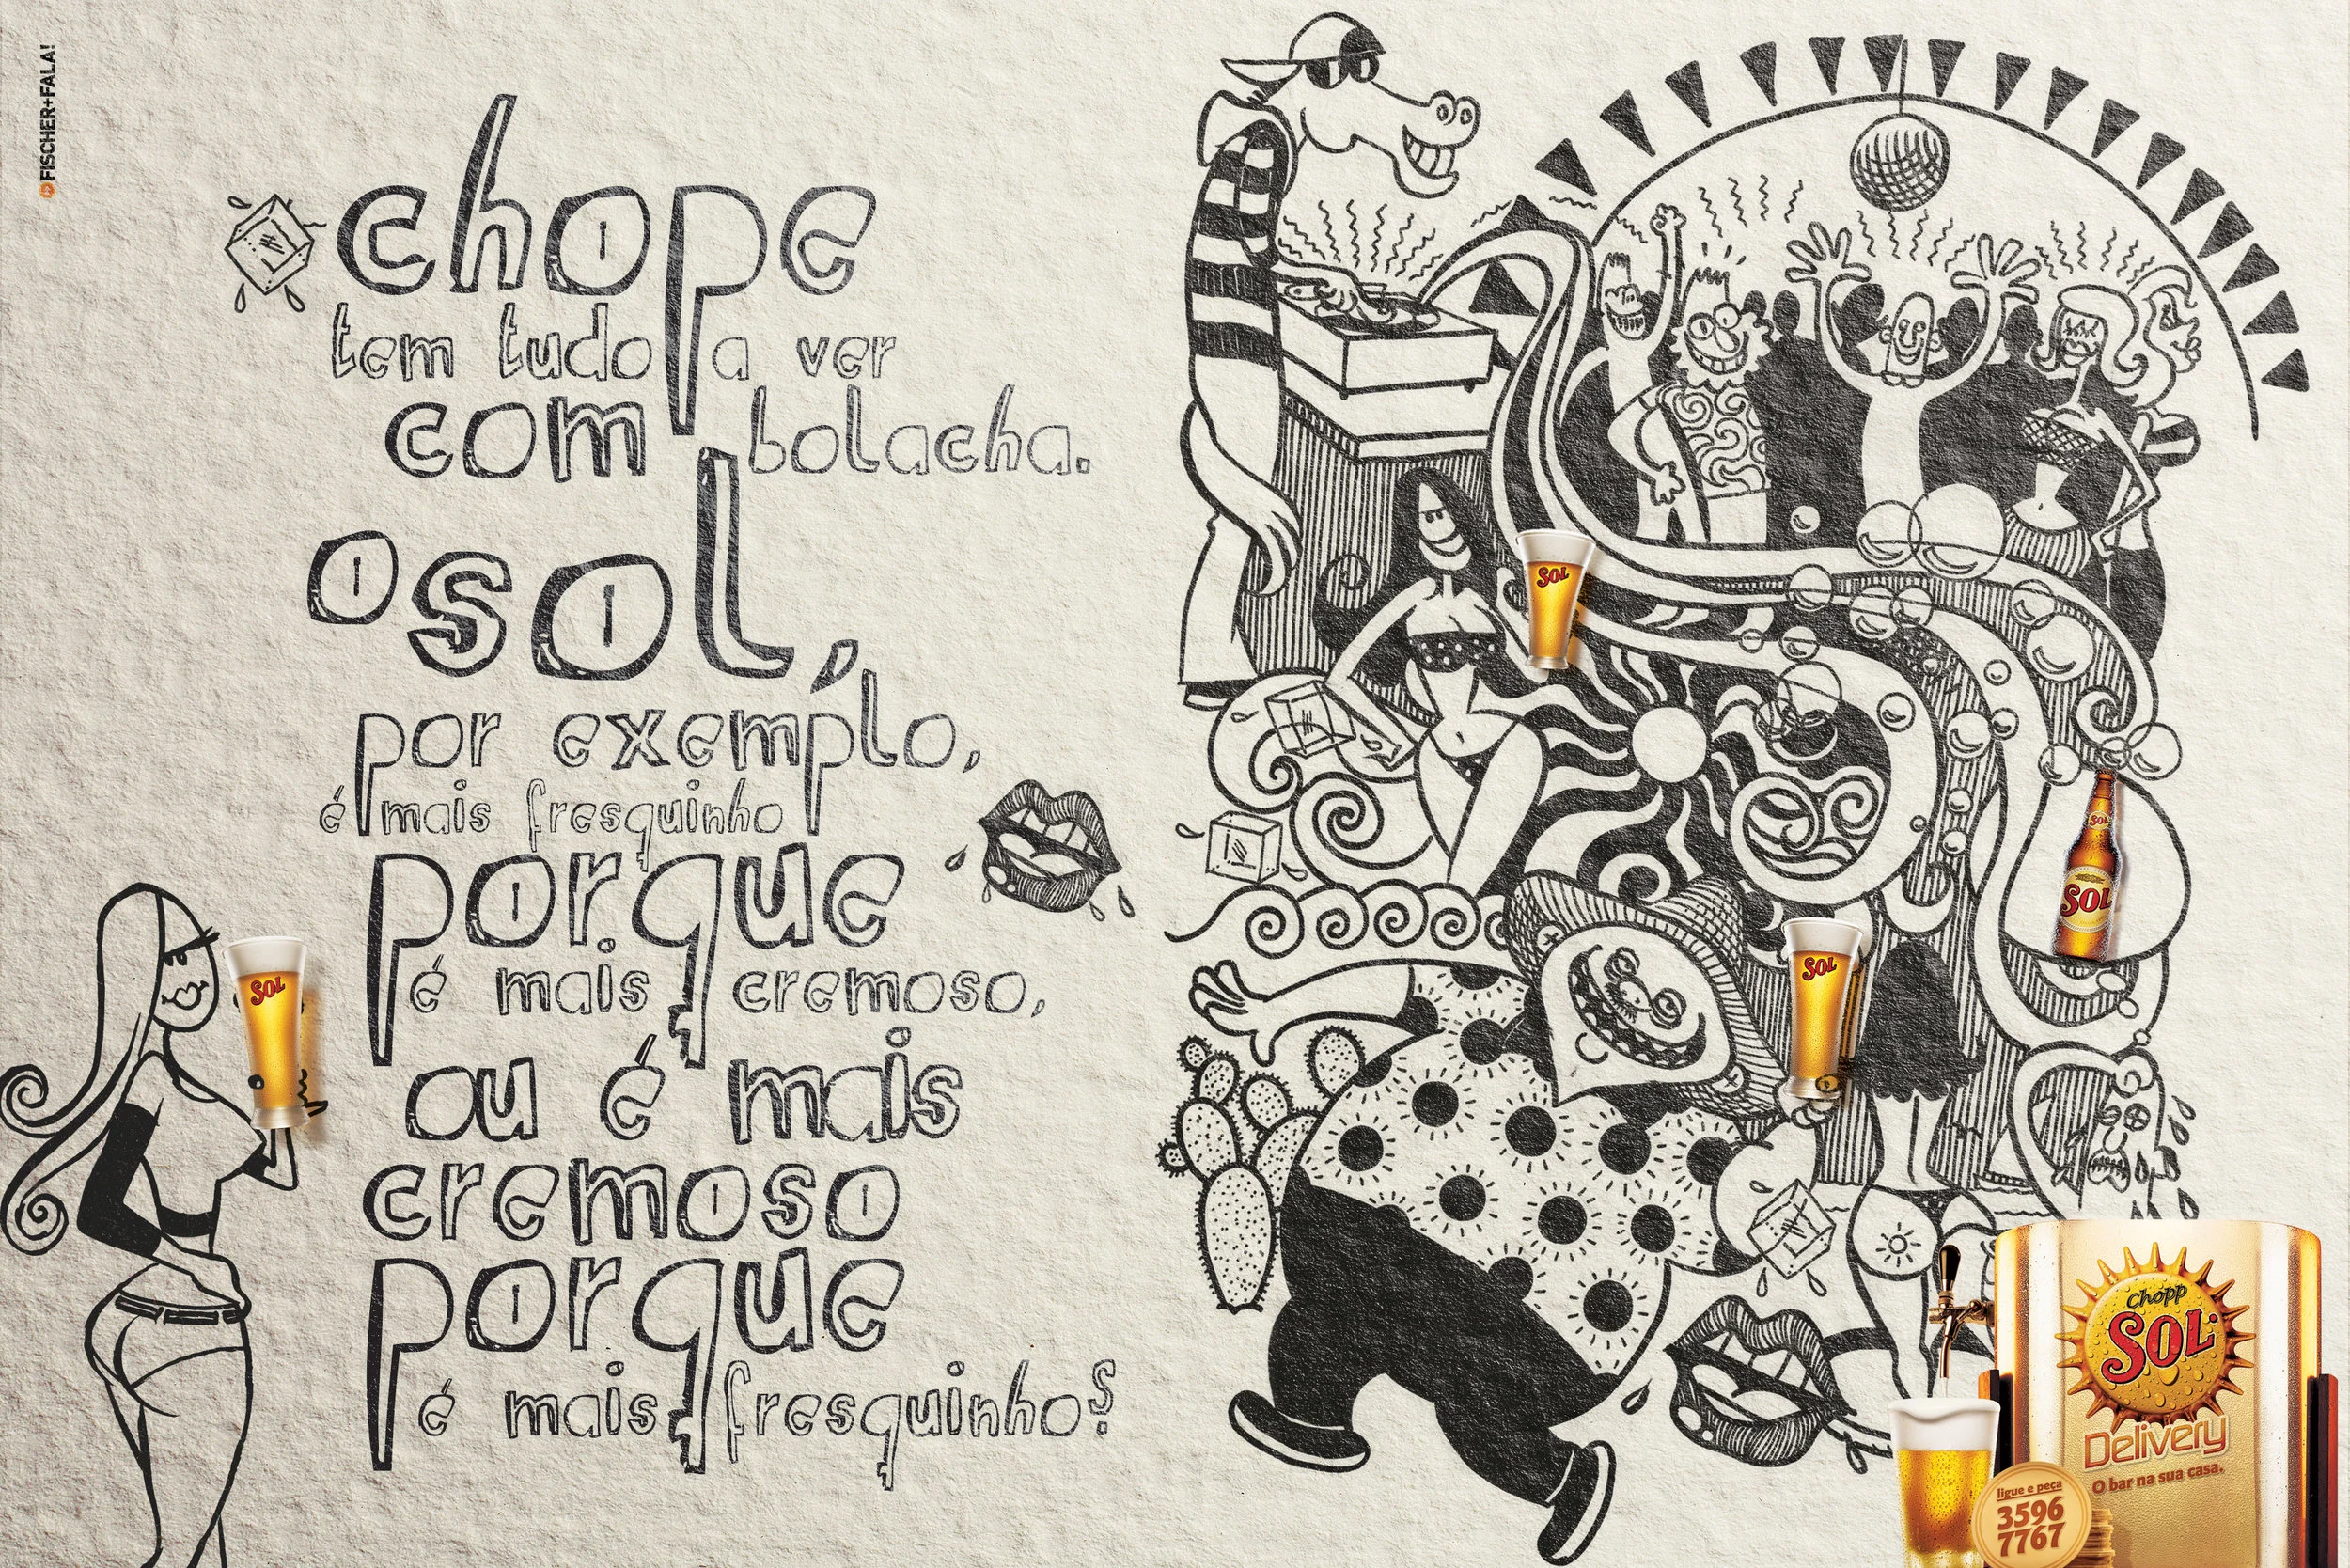 FISCHER+FALA!
chope
tem tudo a ver
com bolacha.
o sol,
por exemplo,
é mais fresquinho
porque
é mais cremoso,
ou é mais
cremoso
porque
é mais fresquinho?
SOL
SOL
SOL
SOL
SOL
Chopp
SOL
Delivery
O bar na sua casa.
ligue e peça
3596
7767